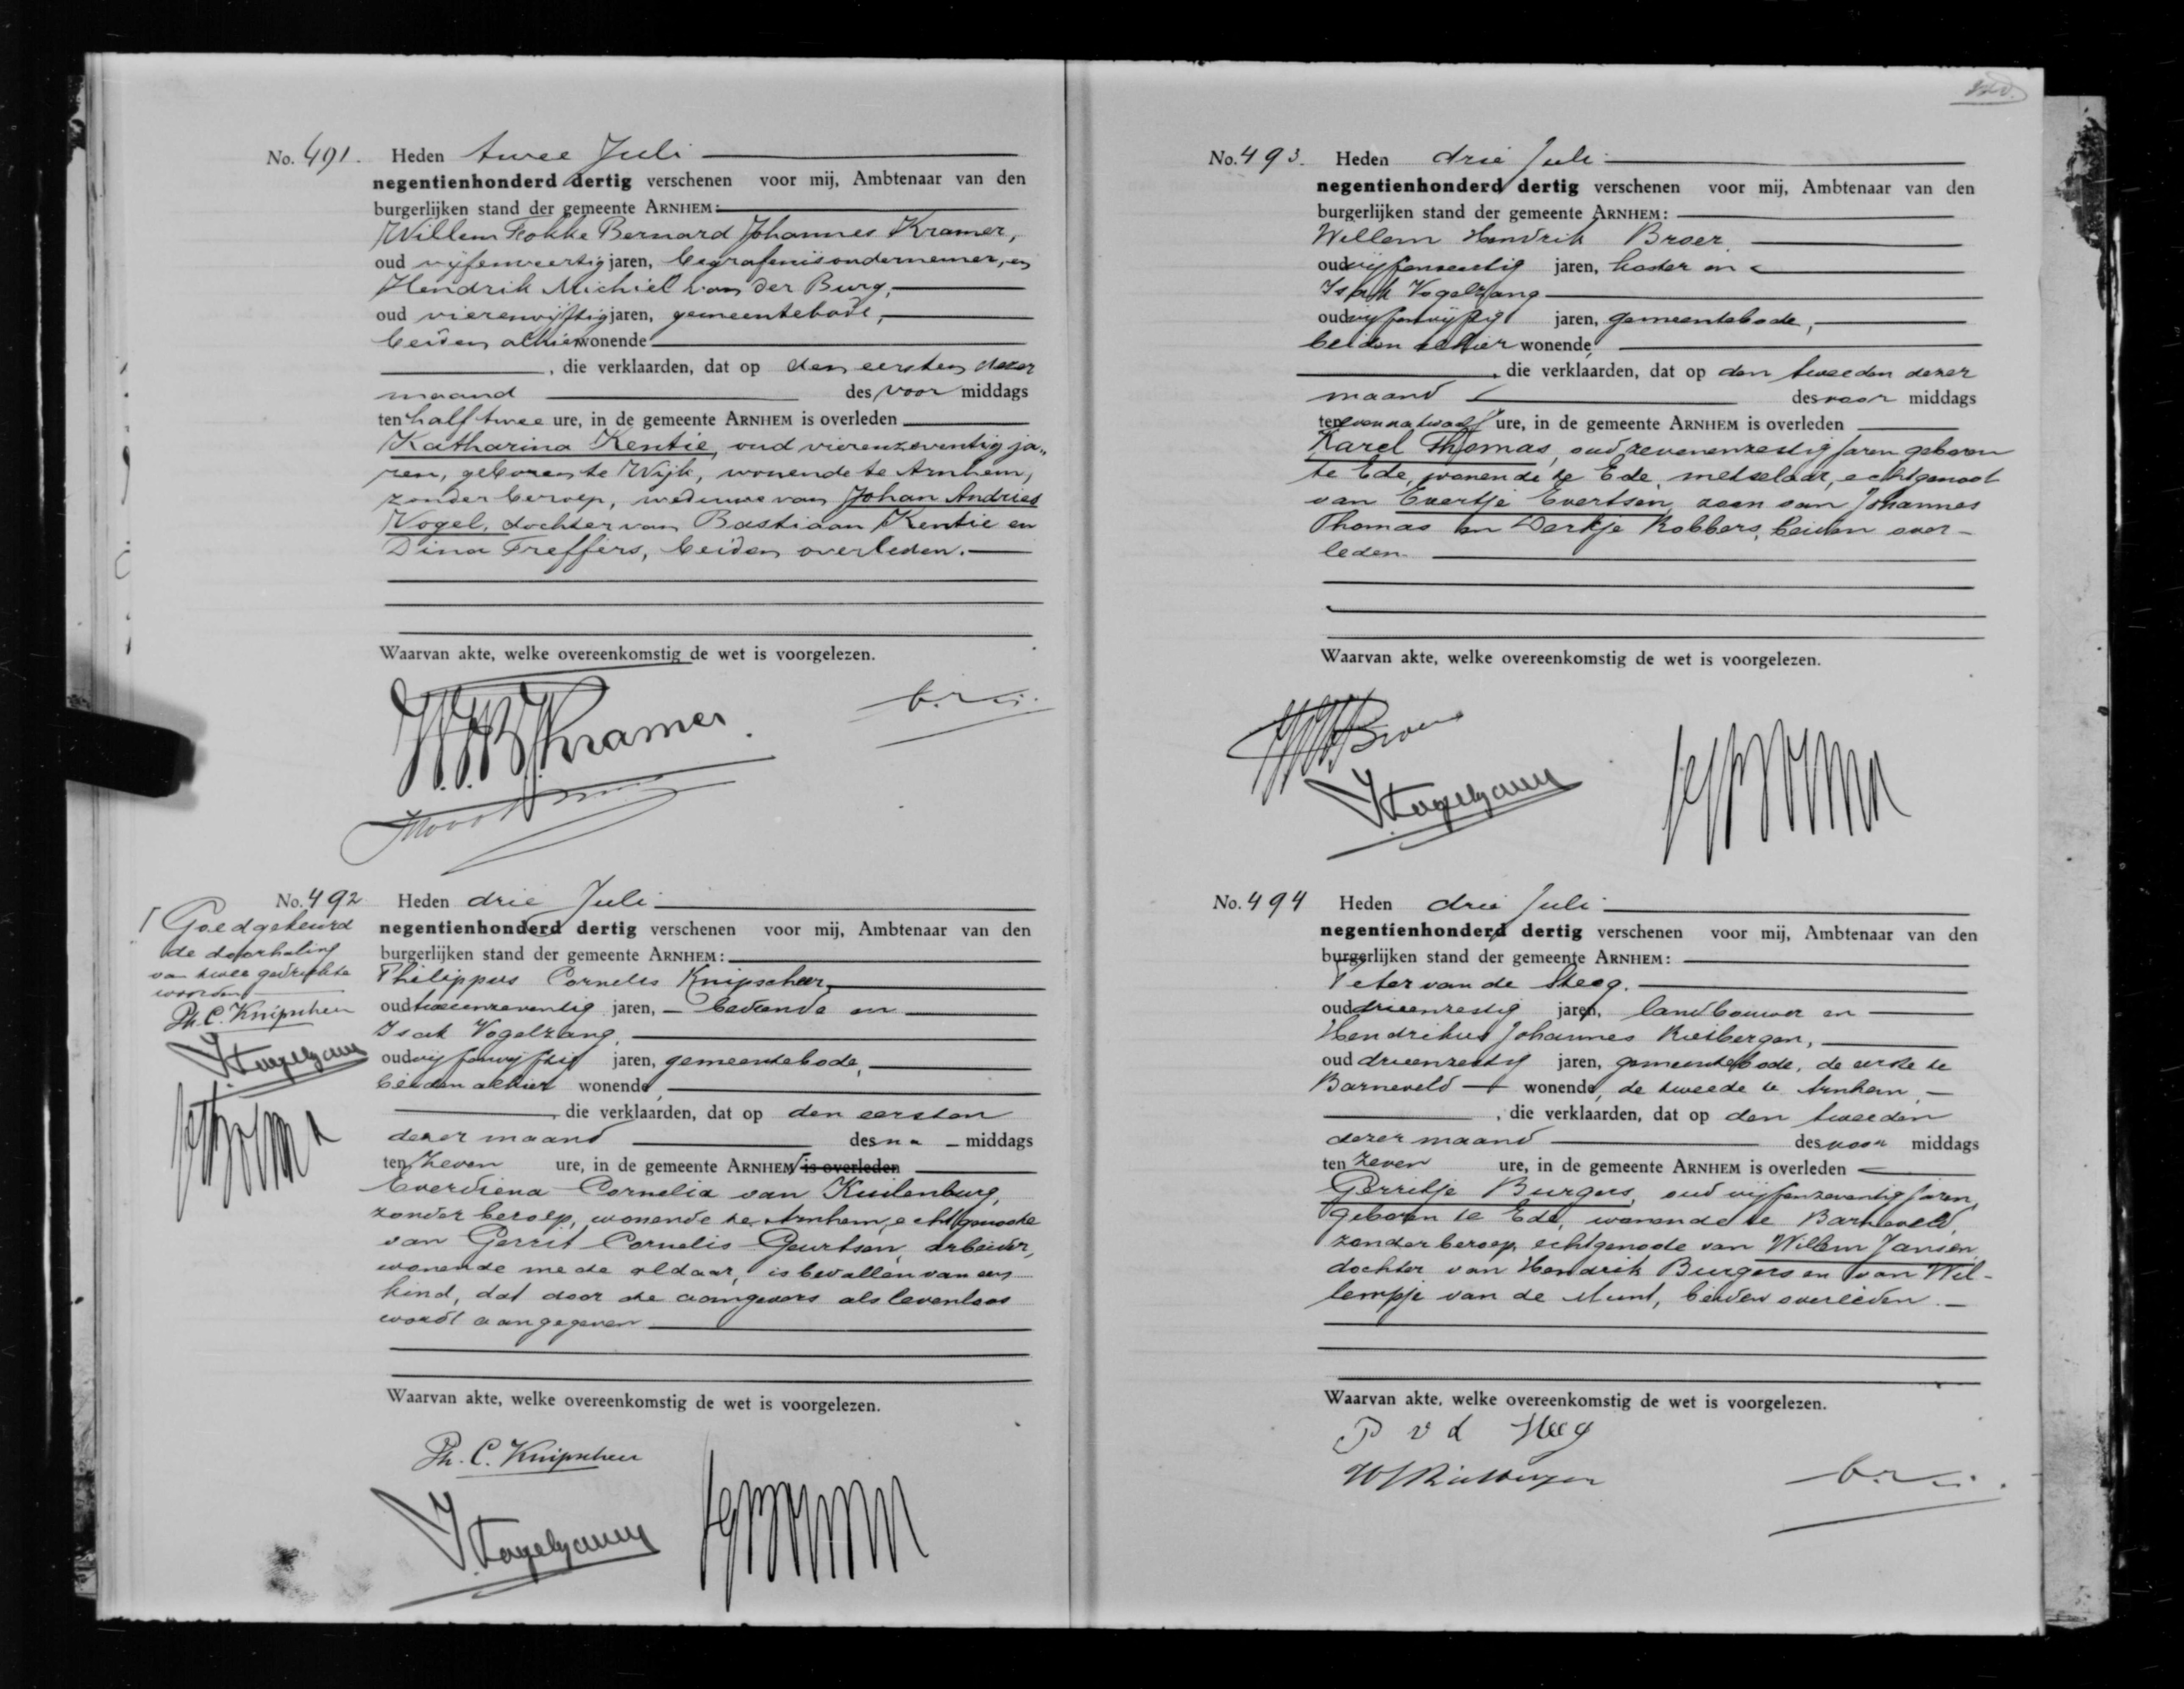 No. 491. Heden twee Juli
negentienhonderd dertig verschenen voor mij, Ambtenaar van den
burgerlijken stand der gemeente ARNHEM:
Willem Fokke Bernard Johannes Kramer,
oud vijfenveertig jaren, begrafenisondernemer, en
Hendrik Michiel van der Burg,
oud vierenvijftig jaren, gemeentebode,
beiden alhier wonende
, die verklaarden, dat op den eersten dezer
maand des voor middags
ten half twee ure, in de gemeente ARNHEM is overleden
Katharina Kentie, oud vierenzeventig ja„
ren, geboren te Wijk, wonende te Arnhem,
zonder beroep, weduwe van Johan Andries
Vogel, dochter van Bastiaan Kentie en
Dina Treffers, beiden overleden.
Waarvan akte, welke overeenkomstig de wet is voorgelezen.
W.F.B.J. Kramer.
No. 492 Heden drie Juli
negentienhonderd dertig verschenen voor mij, Ambtenaar van den
burgerlijken stand der gemeente ARNHEM:
Philippus Cornelis Knipscheer,
oud tweeenzeventig jaren, bediende en
Isak Vogelzang,
oud vijfenvijftig jaren, gemeentebode,
beiden alhier wonende,
, die verklaarden, dat op den eersten
dezer maand des na middags
ten zeven ure, in de gemeente ARNHEM is overleden
Everdiena Cornelia van Kuilenburg,
zonder beroep, wonende te Arnhem, echtgenoote
van Gerrit Cornelis Geurtsen, arbeider,
wonende mede aldaar, is bevallen van een
kind, dat door de aangevers als levenloos
wordt aangegeven
Waarvan akte, welke overeenkomstig de wet is voorgelezen.
Ph. C. Knipscheer
I. Vogelzang
Goedgekeurd
de doorhaling
van twee gedrukte
woorden
Ph. C. Knipscheer
I. Vogelzang
No. 493. Heden drie Juli
negentienhonderd dertig verschenen voor mij, Ambtenaar van den
burgerlijken stand der gemeente ARNHEM:
Willem Hendrik Broer
oud jaren, koster en
Isak Vogelzang
oud vijfenvijftig jaren, gemeentebode,
beiden alhier wonende,
, die verklaarden, dat op den tweeden dezer
maand des voor middags
ten ure, in de gemeente ARNHEM is overleden
Karel Thomas, oud zevenenzestig jaren geboren
te Ede, wonende te Ede, metselaar, echtgenoot
van Evertje Evertsen, zoon van Johannes
Thomas en Derkje Robbers, beiden over-
leden.
Waarvan akte, welke overeenkomstig de wet is voorgelezen.
WH Broer
I. Vogelzang
No. 494 Heden drie Juli
negentienhonderd dertig verschenen voor mij, Ambtenaar van den
burgerlijken stand der gemeente ARNHEM:
Peter van de Steeg.
oud drieenzestig jaren, landbouwer en
Hendrikus Johannes Rietbergen,
oud drieenzestig jaren, gemeentebode, de eerste te
Barneveld wonende, de tweede te Arnhem,
, die verklaarden, dat op den tweeden
dezer maand des voor middags
ten zeven ure, in de gemeente ARNHEM is overleden
Gerritje Burgers, oud vijfenzeventig jaren,
geboren te Ede, wonende te Barneveld,
zonder beroep, echtgenoote van Willem Jansen,
dochter van Hendrik Burgers en van Wil-
lempje van de Munt, beiden overleden.
Waarvan akte, welke overeenkomstig de wet is voorgelezen.
P v d Steeg